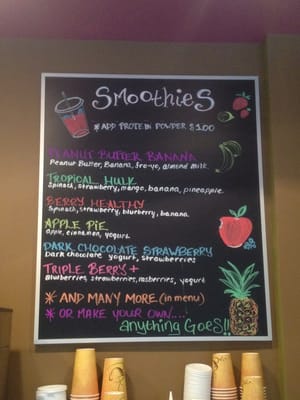 Smoothies
* ADD PROTEIN POWDER $1.00
PEANUT BUTTER BANANA
Peanut Butter, Banana, fro-yo, almond milk
TROPICAL HULK
Spinach, strawberry, mango, banana, pineapple
BERRY HEALTHY
Spinach, strawberry, blueberry, banana
APPLE PIE
apple, cinnamon, yogurt
DARK CHOCOLATE STRAWBERRY
Dark chocolate yogurt, strawberries
TRIPLE BERRY +
Blueberries, strawberries, rasberries, yogurt
* AND MANY MORE (in menu)
* OR MAKE YOUR OWN....
anything GOES!!